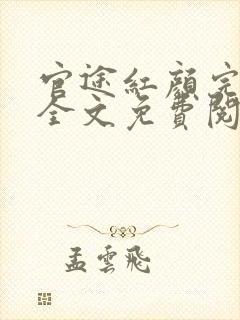 官途紅顏完
全文免費閱
孟雲飛